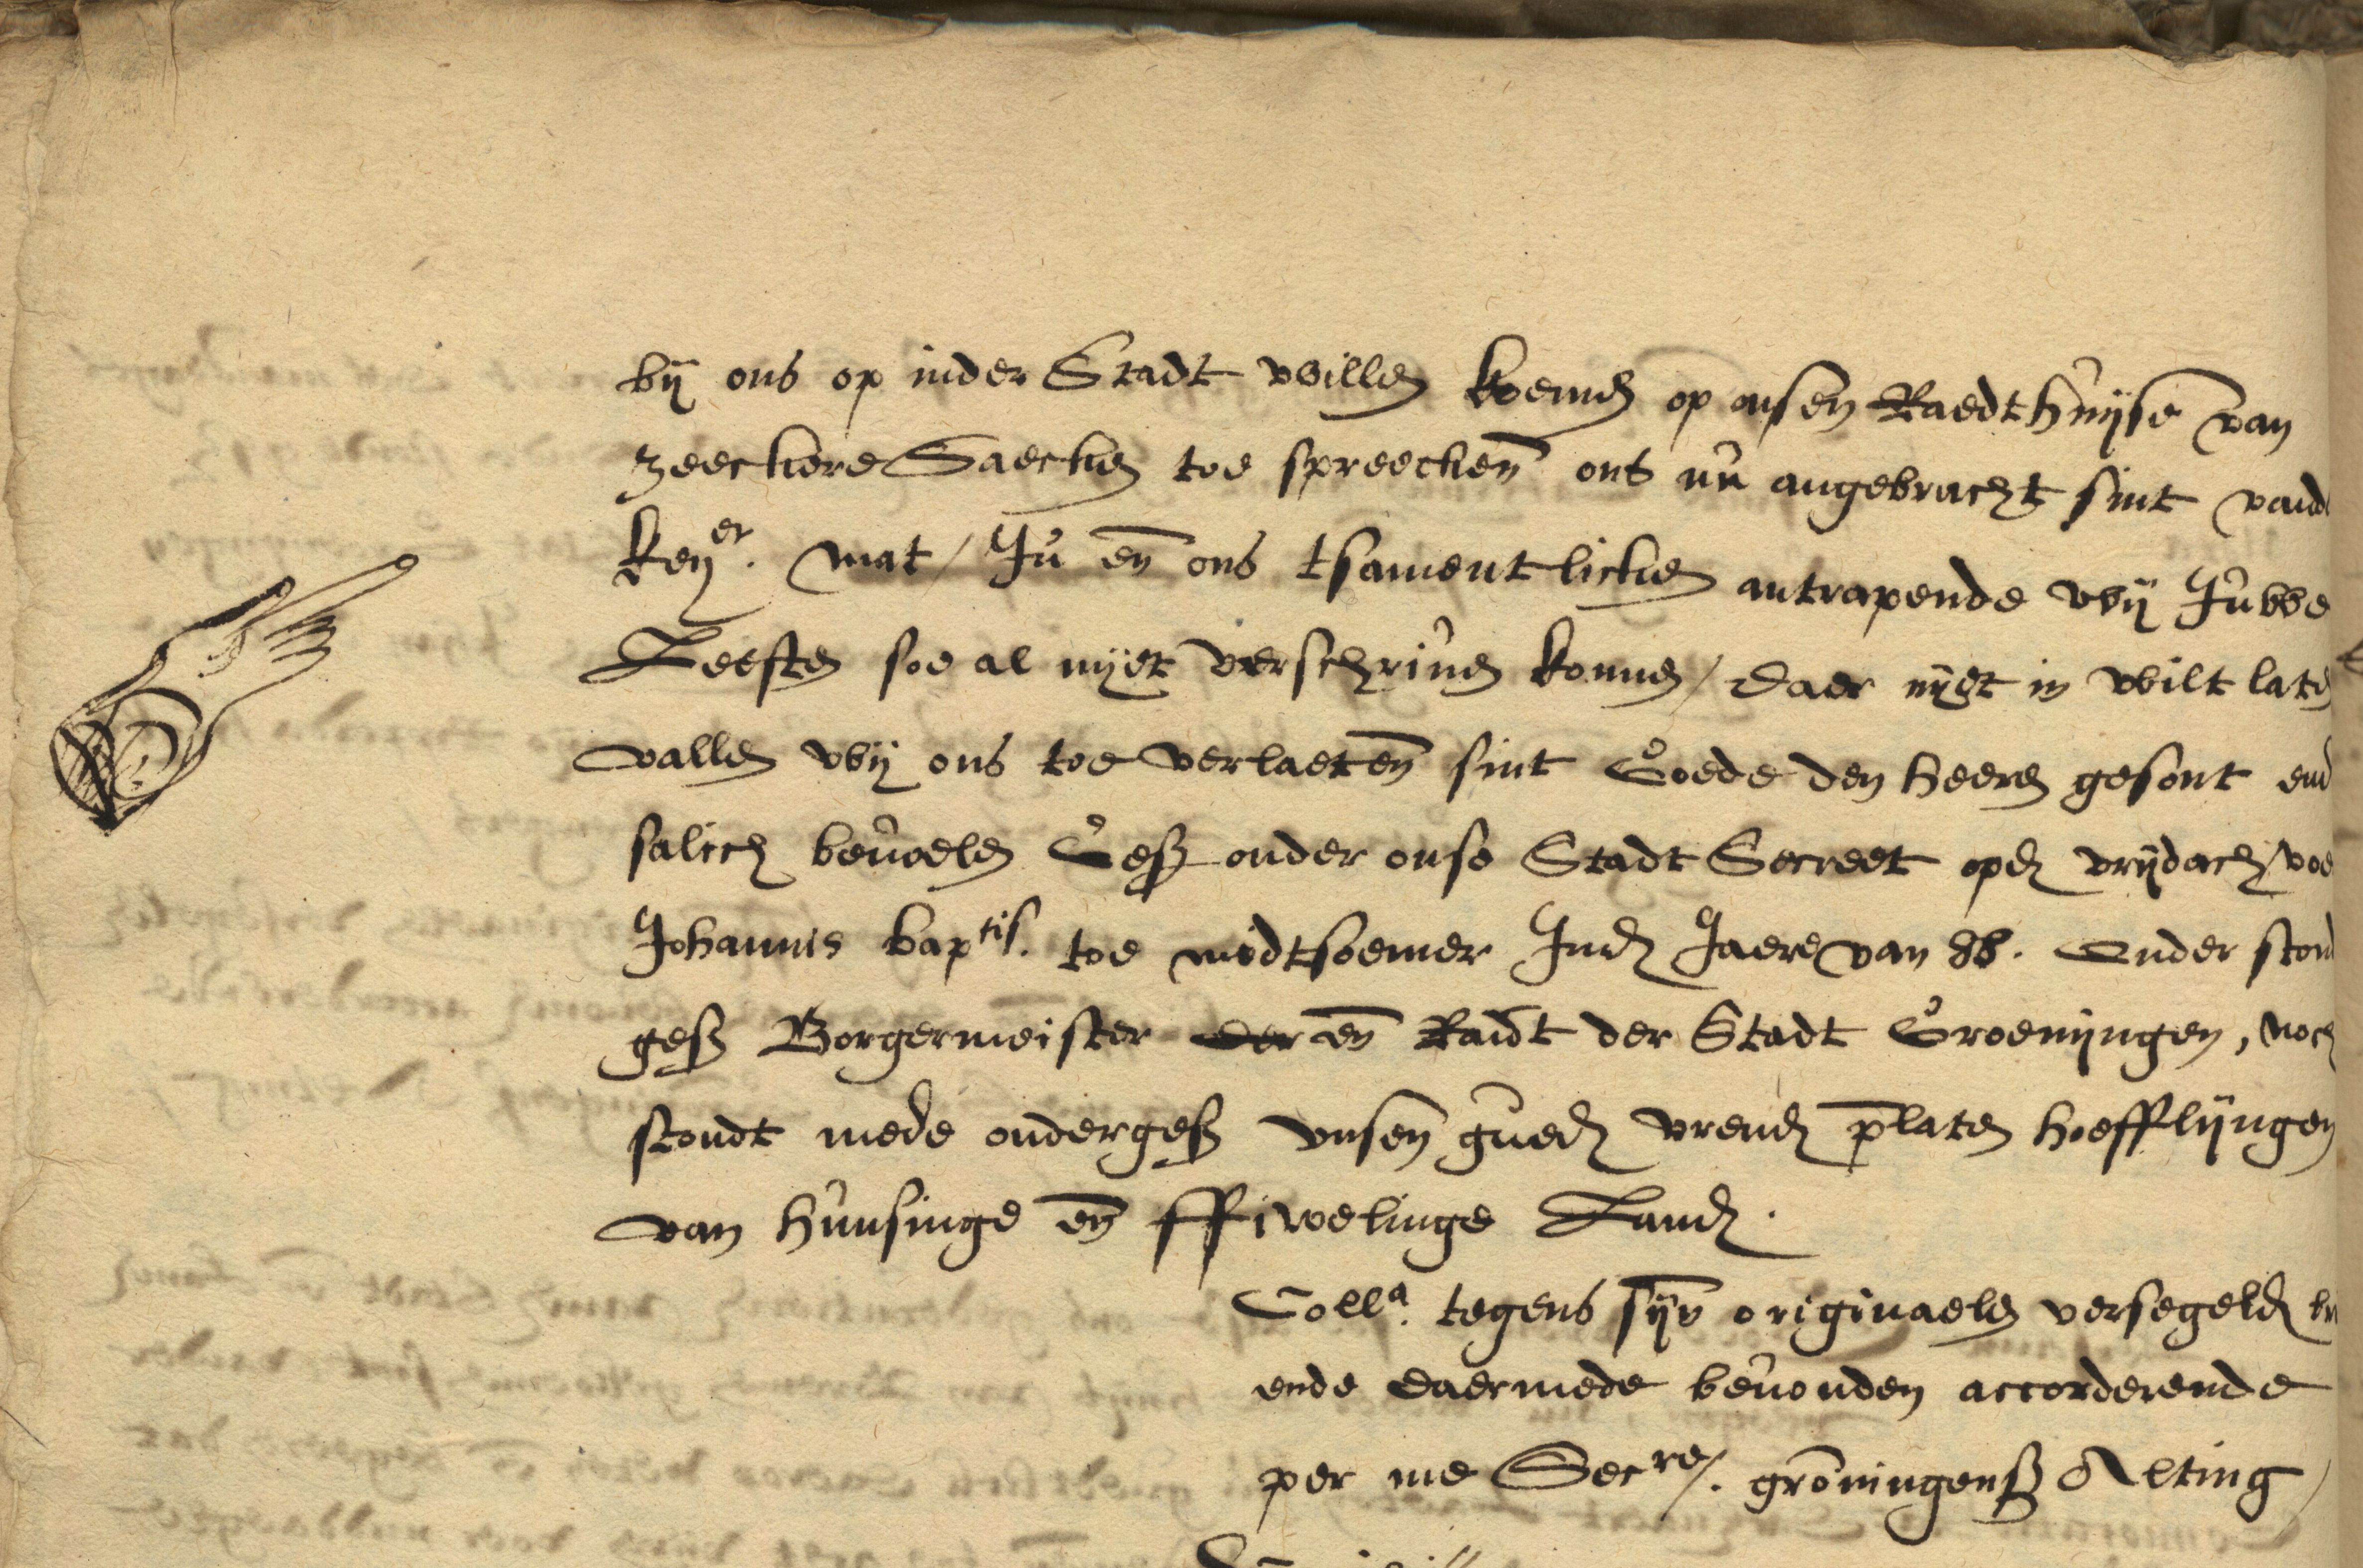 bij ons op inder Stadt willen koemen op onsen Raedthuijse van
zeeckere Saecken toe spreecken ons nu angebracht sint vand
Keyer. mat / Ju en ons tsamentlicken antrapende wij Jubbe
Leeften soe al nyet verschriuen konnen / daer nyet in wilt laten
vallen wij ons toe verlaeten sint Goede den heeren gesont end
salich beuoelen Geß onder onse Stadt Secreet opden vrijdach voe
Johannis baptis. toe midtsoemer Inden Jaere van 88. Onder stond
geß Borgermeister der en Raidt der Stadt Groenijngen, noch
stondt mede ondergeß Vnsen gueden vrenden platen hoefflijngen
van hunsinge en ffiwelinge Landen.
Colla. tegens sijn originaelen versegelden br
ende daermede beuonden accorderende
per me Secre. groningenß Alting